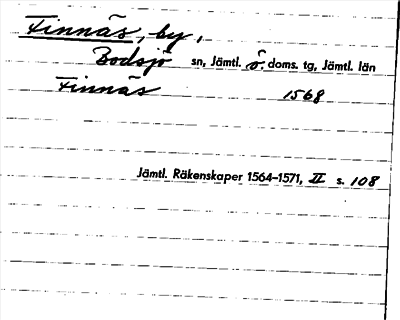 Finnäs, by,
Bodsjö sn, Jämtl. ö. doms. tg, Jämtl. län
Finnäs 1568
Jämtl. Räkenskaper 1564–1571, II s. 108